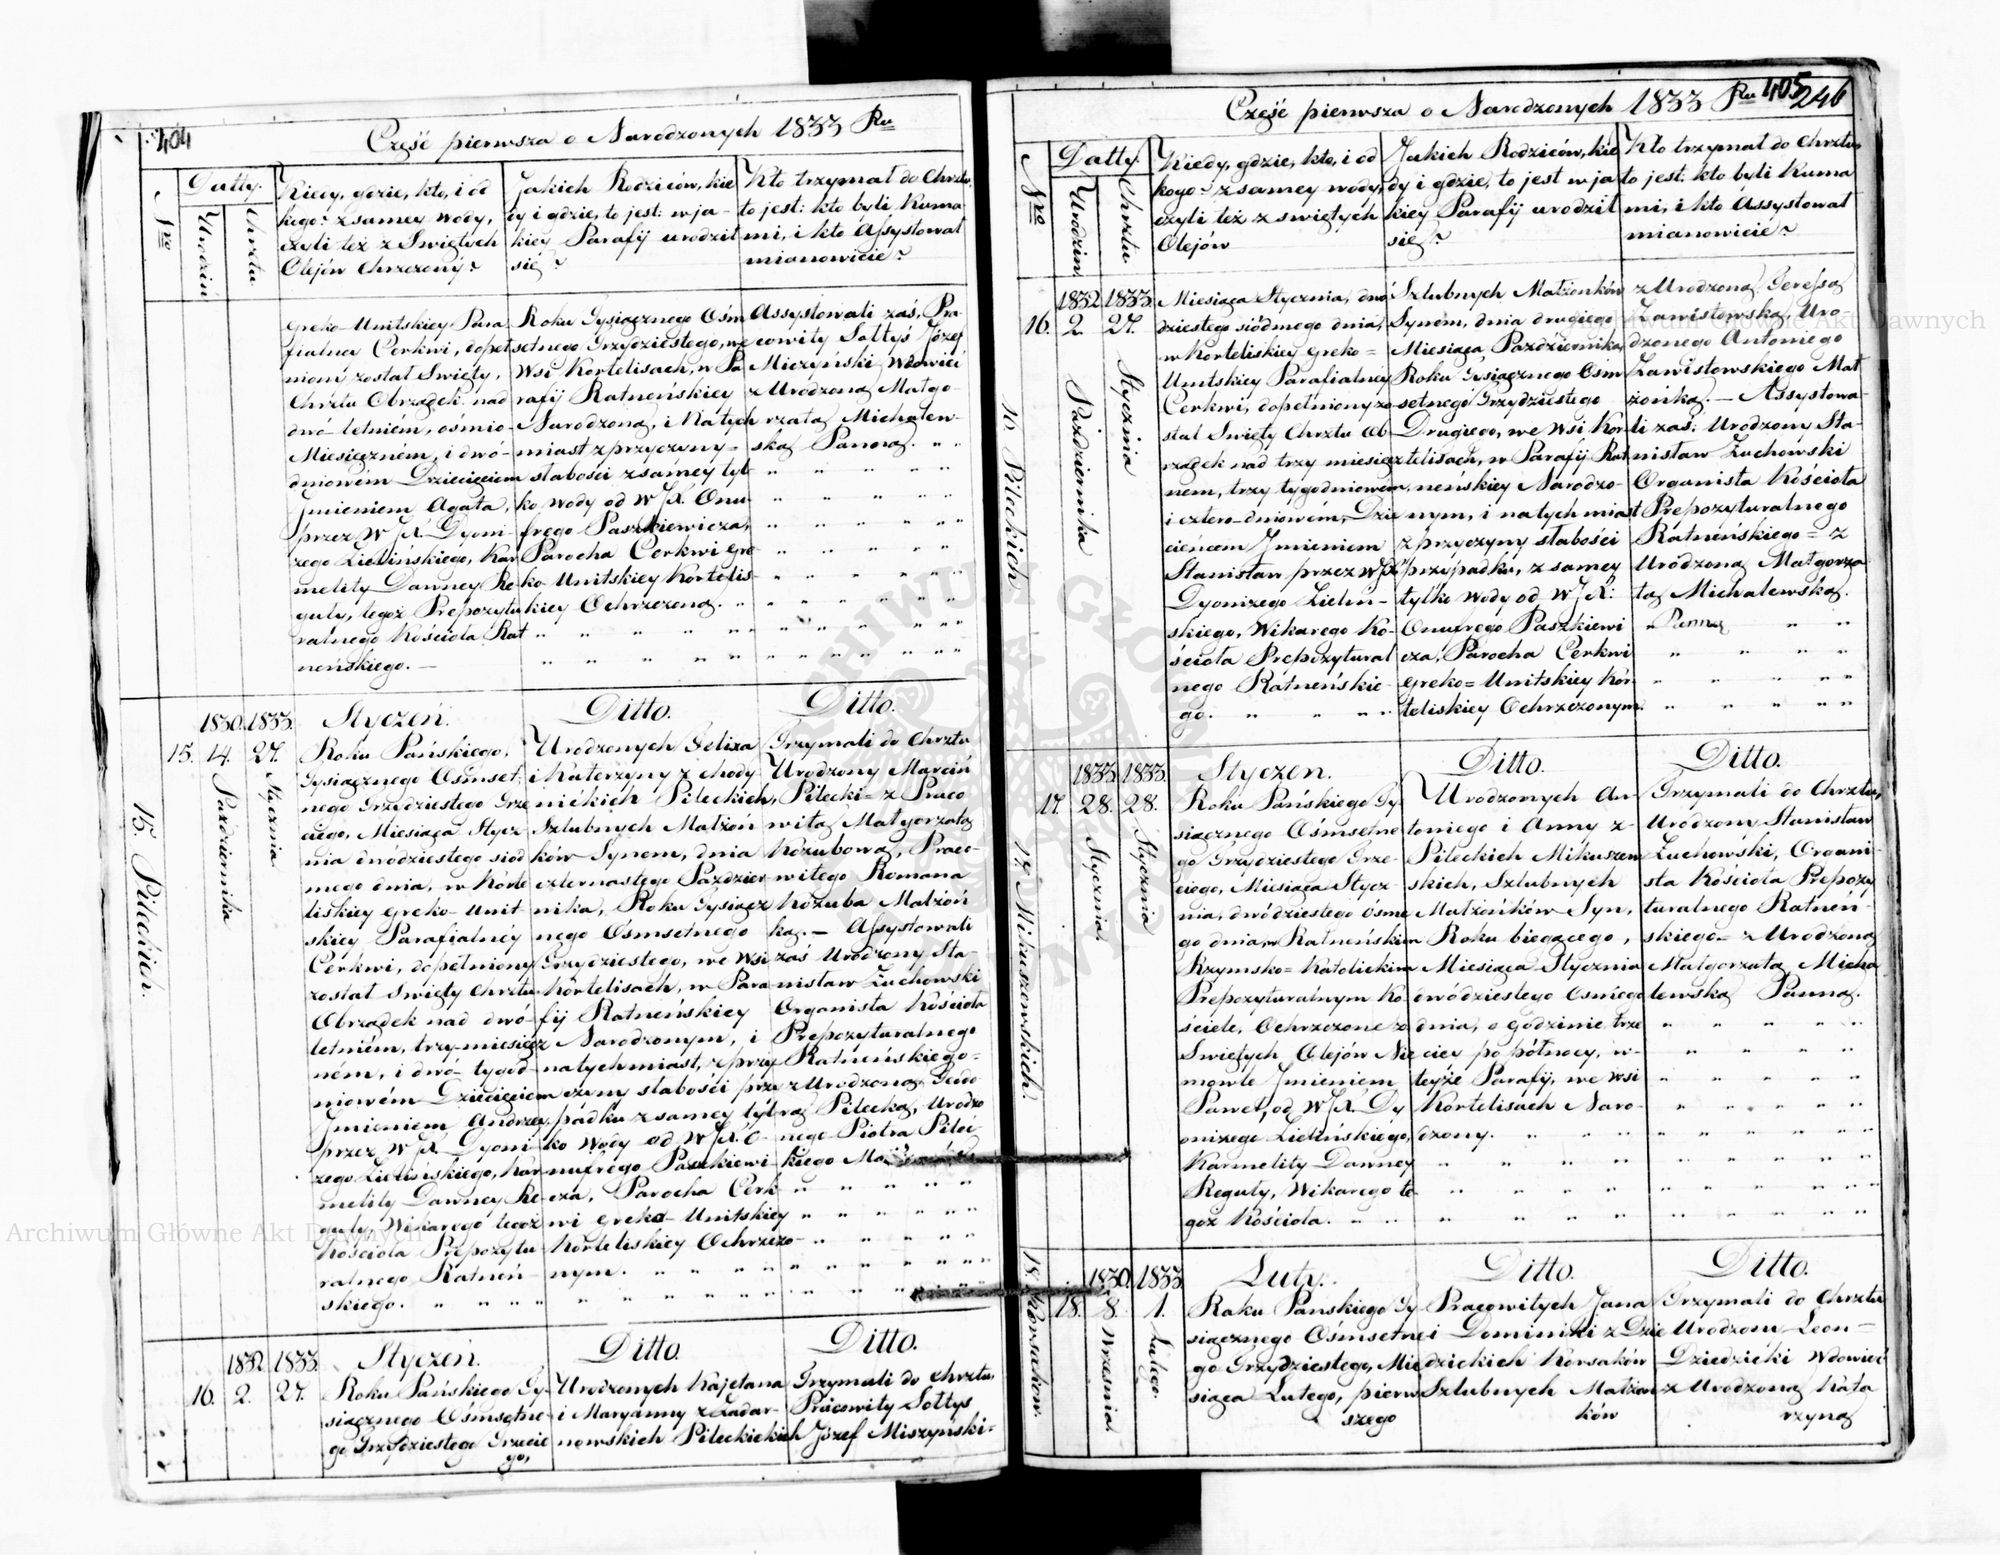 404
Część pierwsza o Narodzonych 1833 Ru
Nro
Datty.
Urodzin
Chrztu.
Kiedy, gdzie, kto, i od
kogo? z samey wody,
czyli też z Swiętych
Olejów Chrzczony?
Jakich Rodziców, kie
dy i gdzie, to jest: w ja-
kiey Parafij urodził
się?
Kto trzymał do Chrztu,
to jest: kto byli Kuma-
mi, i kto Assystował
mianowicie?
Greko-Unitskiey Para
fialney Cerkwi, dopeł
niony został Swięty,
Chrztu Obrządek nad
dwó-letniém, ośmio-
Miesięcznem, i dwó-
dniowém Dziecięciem
Jmieniem Agata,
przez W JX. Dyoni-
zego Zielińskiego, Kar
melity Dawney Re
guły, tegoż Prepozytu
ralnego Kościoła Rat
neńskiego. —
Roku Tysiącznego Ośm
setnego Trzydziestego, we
Wsi Kortelisach, w Pa
rafij Ratneńskiey
Narodzoną, i Natych
miast z przyczyny-
słabości z samey tyl
ko, wody od W JX. Onu
frego Paszkiewicza,
Parocha Cerkwi Gre
ko Unitskiey Kortelis-
kiey Ochrzczoną.
Assystowali zaś, Pra-
cowity Sołtys Józef
Miszyński Wdowiec
z Urodzoną Małgo-
rzatą Michalew-
ską Panną.
15. Pileckich.
1830. 1833.
15. 14. 27.
Pazdziernika
Stycznia
Styczeń.
Roku Pańskiego,
Tysiącznego Osmset,
nego Trzydziestego Trze
ciego, Miesiąca Stycz
nia dwódziestego siód
mego dnia, w Korte
liskiey Greko-Unit-
skiey Parafialnéy
Cerkwi, dopełniony
został Swięty Chrztu
Obrządek nad dwó-
letniém, trzy-miesięcz
ném, i dwó-tygod-
niowém Dziecięciem
Jmieniem Andrzey,
przez W JX. Dyoni-
zego Zielińskiego, Kar
melity Dawney Re-
guły, Wikarego tegoż
Kościoła Prepozytu
ralnego Ratneń-
skiego.
Ditto.
Urodzonych Felixa
i Katerzyny z Chody
nickich Pileckich,
Szlubnych Małżon
ków Synem, dnia
czternastego Pazdzier
nika, Roku Tysiącz
nego Osmsetnego
Trzydziestego, we Wsi
Kortelisach, w Para
fij Ratneńskiey
Narodzonym, i
natychmiast, z przy
czyny słabości przy
pádku z samey tyl
ko Wody od W JX. O-
nufrego Paszkiewi-
cza, Parocha Cerk
wi Greko-Unitskiey
Korteliskiey Ochrzczo-
nym.
Ditto.
Trzymali do Chrztu
Urodzony Marcin
Pilecki = z Praco
witą Małgorzatą
Kozubową, Praco-
witego Romana
Kozuba Małżon
ką. — Assystowali
zaś Urodzony Sta-
nisław Zuchowski
Organista Kościoła
Prepozyturalnego
Ratneńskiego =
z Urodzoną Teodo
rą Pilecką, Urodzo
nego Piotra Pilec
kiego
1832. 1833.
16. 2. 27.
Styczeń.
Roku Pańskiego Ty-
siącznego Ośmsetne-
go Trzydziestego Trzecie
go,
Ditto.
Urodzonych Kajetana
i Maryanny z Zadar-
nowskich Pileckich
Ditto.
Trzymali do Chrztu,
Pracowity Sołtys
Józef Miszyński-
405
246
Część pierwsza o Narodzonych 1833 Ru
Nro
Datty.
Urodzin
Chrztu.
Kiedy, gdzie, kto, i od
kogo? z samey wody,
czyli też z swiętych
Olejów
Jakich Rodziców, kie
dy i gdzie, to jest w ja
kiey Parafij urodził
się?
Kto trzymał do Chrztu
to jest: kto byli Kuma
mi, i kto Assystował
mianowicie?
16. Pileckich
1832 1833.
16. 2. 27.
Pazdziernika
Stycznia
Miesiąca Stycznia, dwó
dziestego siódmego dnia,
w Korteliskiey Greko=
Unitskiey Parafialney
Cerkwi, dopełniony zo
stał Swięty Chrztu Ob-
rządek nad trzy miesięcz
nem, trzy tygodniowem,
i cztero-dniowém, Dzie
cięncem Jmieniem
Stanisław przez W JX.
Dyonizego Zieliń-
skiego, Wikarego Ko-
ścioła Prepozytural
nego Ratneńskie
go.
Szlubnych Małżonków
Synem, dnia drugiego
Miesiąca Pazdziernika,
Roku Tysiącznego Osm
setnego Trzydziestego
Drugiego, we Wsi Kor-
telisach, w Parafij Rat
nenskiey Narodzo-
nym, i natychmiast
z przyczyny słabości
przypadku, z samey
tylko Wody od W JX:
Onufrego Paszkiewi
cza, Parocha Cerkwi
Greko=Unitskiey Kor
teliskiey Ochrzczonym.
z Urodzoną Teressą
Zawistowską, Uro
dzonego Antoniego
Zawistowskiego Mał
żonką. — Assystowa-
li zaś: Urodzony Sta-
nisław Zuchowski
Organista Kościoła
Prepozyturalnego
Ratneńskiego = z
Urodzoną Małgorza
tą Michalewską.
Panną
17. Mikuszewskich
1833. 1833.
17. 28. 28.
Stycznia
Stycznia
Styczen.
Roku Pańskiego Ty
siącznego Ośmsetne
go Trzydziestego Trze-
ciego, Miesiąca Stycz-
nia, dwódziestego ósme
go dnia, w Ratneńskim
Rzymsko=Katolickim
Prepozyturalnym Ko-
ściele, Ochrzczone z o
Swiętych Olejów Nie
mowle Jmieniem
Paweł, od W JX. Dy
onizego Zielińskiego,
Karmelity Dawney
Reguły, Wikarego te-
goż Kościoła.
Ditto.
Urodzonych An-
toniego i Anny z-
Pileckich Mikuszew
skich, Szlubnych
Małżonków Syn,
Roku bieżącego,
Miesiąca Stycznia
dwódziestego Osmego
dnia, o godzinie trze
ciey po północy, w-
teyże Parafij, we Wsi
Kortelisach Naro-
dzony.
Ditto.
Trzymali do Chrztu,
Urodzony Stanisław
Zuchowski, Organi-
sta Kościoła Prepozy
turalnego Ratneń-
skiego = z Urodzoną
Małgorzatą Micha
lewską Panną.
18. Korsaków.
1830. 1833.
18. 8. 1.
Wrzesnia
Lutego.
Luty.
Roku Pańskiego Ty
siącznego Ośmsetne
go Trzydziestego, Mie
siąca Lutego, pierw
szego
Ditto.
Pracowitych Jana
i Dominiki z Dzie
dzickich Korsaków
Szlubnych Małżon
ków
Ditto.
Trzymali do Chrztu
Urodzony Leon=
Dziedzicki Wdowiec
z Urodzoną Kata
rzyną
Archiwum Główne Akt Dawnych
Archiwum Główne Akt Dawnych